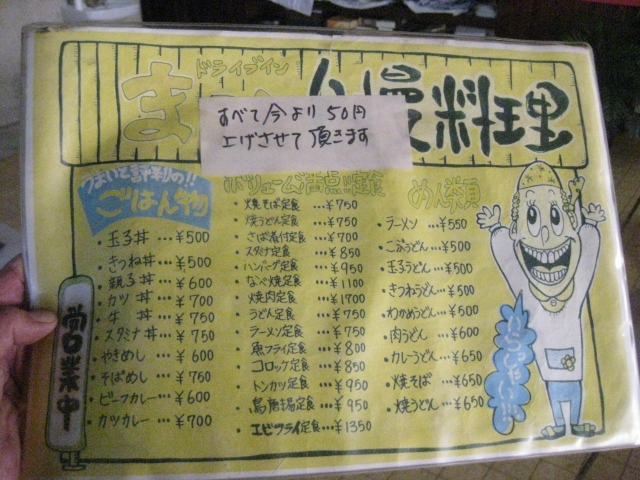 ドライブイン
ま 自慢料理
すべて今より50円
上げさせて頂きます
うまいで評判の!!
ごはん物
・玉子丼…¥500
・きつね丼…¥500
・親子丼…¥600
・カツ丼…¥700
・牛丼…¥750
・スタミナ丼…¥750
・やきめし…¥600
・そばめし…¥750
・ビーフカレー…¥600
・カツカレー…¥700
営業中
ボリューム満点定食
・焼そば定食…¥750
・焼うどん定食…¥750
・さば煮付定食…¥700
・スタミナ定食…¥850
・ハンバーグ定食…¥950
・なべ焼定食…¥1100
・焼肉定食…¥1700
・うどん定食…¥750
・ラーメン定食…¥750
・魚フライ定食…¥800
・コロッケ定食…¥850
・トンカツ定食…¥950
・鳥唐揚定食…¥950
・エビフライ定食…¥1350
めん類
・ラーメン…¥550
・こぶうどん…¥500
・玉子うどん…¥500
・きつねうどん…¥500
・わかめうどん…¥500
・肉うどん…¥600
・カレーうどん…¥650
・焼そば…¥650
・焼うどん…¥650